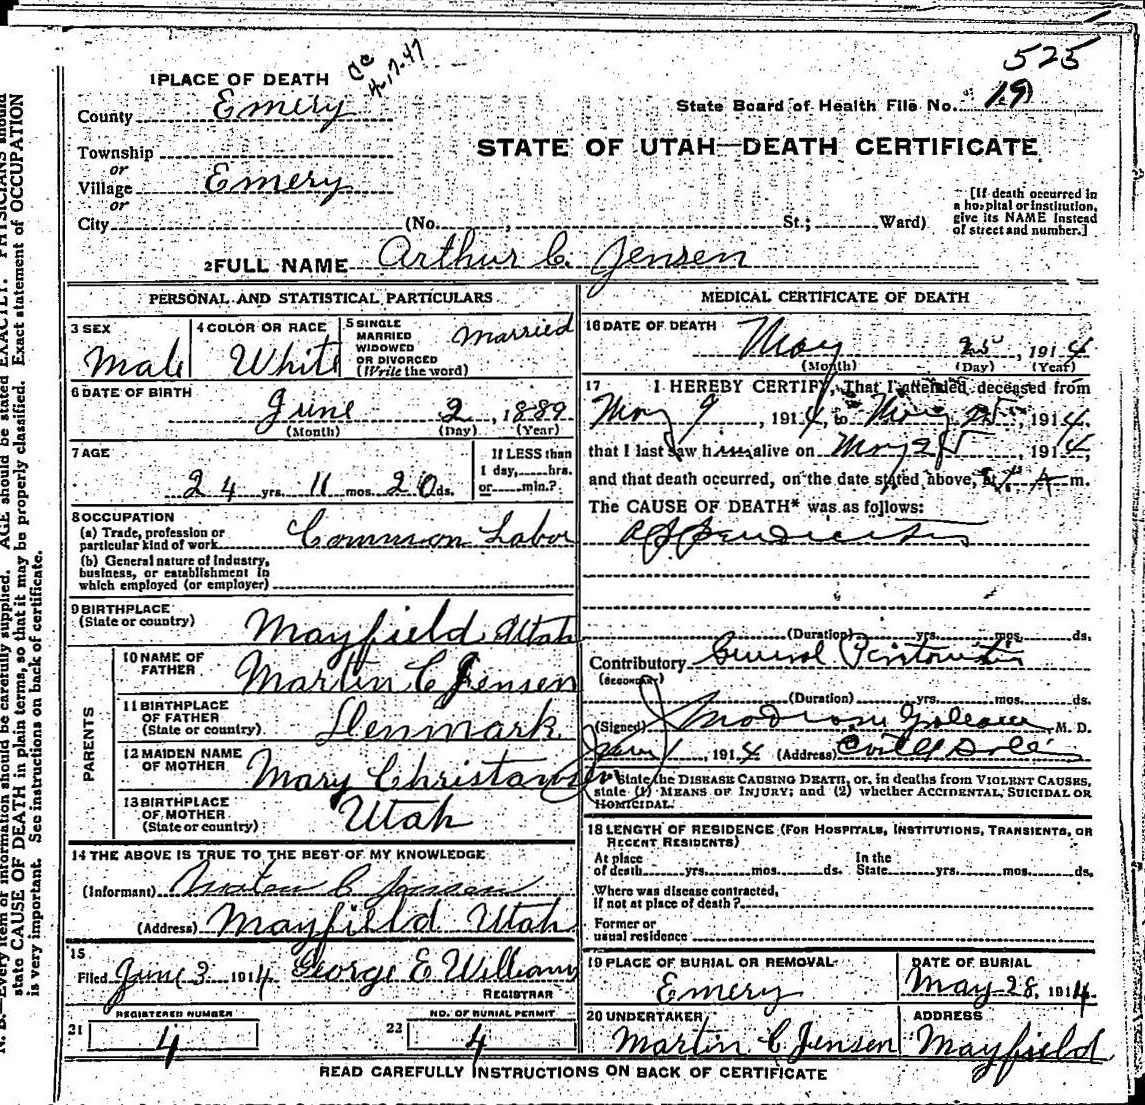 525
1 PLACE OF DEATH
4-17-47
County Emery
State Board of Health File No. 19
STATE OF UTAH—DEATH CERTIFICATE
Township
or
Village Emery
or
City (No. , St.; Ward)
[If death occurred in
a hospital or institution,
give its NAME instead
of street and number.]
2 FULL NAME Arthur C. Jensen
PERSONAL AND STATISTICAL PARTICULARS
3 SEX Male
4 COLOR OR RACE White
5 SINGLE
MARRIED
WIDOWED
OR DIVORCED
(Write the word)
Married
6 DATE OF BIRTH
June 2, 1889
(Month) (Day) (Year)
7 AGE
24 yrs. 11 mos. 20 ds.
If LESS than
1 day, hrs.
or min.?
8 OCCUPATION
(a) Trade, profession or
particular kind of work Common Labor
(b) General nature of industry,
business, or establishment in
which employed (or employer)
9 BIRTHPLACE
(State or country) Mayfield Utah
PARENTS
10 NAME OF
FATHER Martin C Jensen
11 BIRTHPLACE
OF FATHER
(State or country) Denmark
12 MAIDEN NAME
OF MOTHER Mary Christansen
13 BIRTHPLACE
OF MOTHER
(State or country) Utah
14 THE ABOVE IS TRUE TO THE BEST OF MY KNOWLEDGE
(Informant) C Jensen
(Address) Mayfield Utah
15
Filed June 3 1914 George E Williams
REGISTRAR
REGISTERED NUMBER
21 4
NO. OF BURIAL PERMIT
22 4
MEDICAL CERTIFICATE OF DEATH
16 DATE OF DEATH
May 25, 1914
(Month) (Day) (Year)
17 I HEREBY CERTIFY, That I attended deceased from
May 9, 1914, to May 25, 1914,
that I last saw him alive on May 25, 1914,
and that death occurred, on the date stated above, at A m.
The CAUSE OF DEATH* was as follows:
Appendicitis
(Duration) yrs. mos. ds.
Contributory General Peritonitis
(SECONDARY)
(Duration) yrs. mos. ds.
(Signed) M. D.
1, 1914 (Address) Castle Dale
*State the DISEASE CAUSING DEATH, or, in deaths from VIOLENT CAUSES,
state (1) MEANS OF INJURY; and (2) whether ACCIDENTAL, SUICIDAL OR
HOMICIDAL.
18 LENGTH OF RESIDENCE (FOR HOSPITALS, INSTITUTIONS, TRANSIENTS, OR
RECENT RESIDENTS)
At place
of death yrs. mos. ds.
In the
State yrs. mos. ds.
Where was disease contracted,
if not at place of death?
Former or
usual residence
19 PLACE OF BURIAL OR REMOVAL
Emery
DATE OF BURIAL
May 28, 1914
20 UNDERTAKER
Martin C Jensen
ADDRESS
Mayfield
READ CAREFULLY INSTRUCTIONS ON BACK OF CERTIFICATE
N. B.—Every item of information should be carefully supplied. AGE should be stated EXACTLY. PHYSICIANS should
state CAUSE OF DEATH in plain terms, so that it may be properly classified. Exact statement of OCCUPATION
is very important. See instructions on back of certificate.